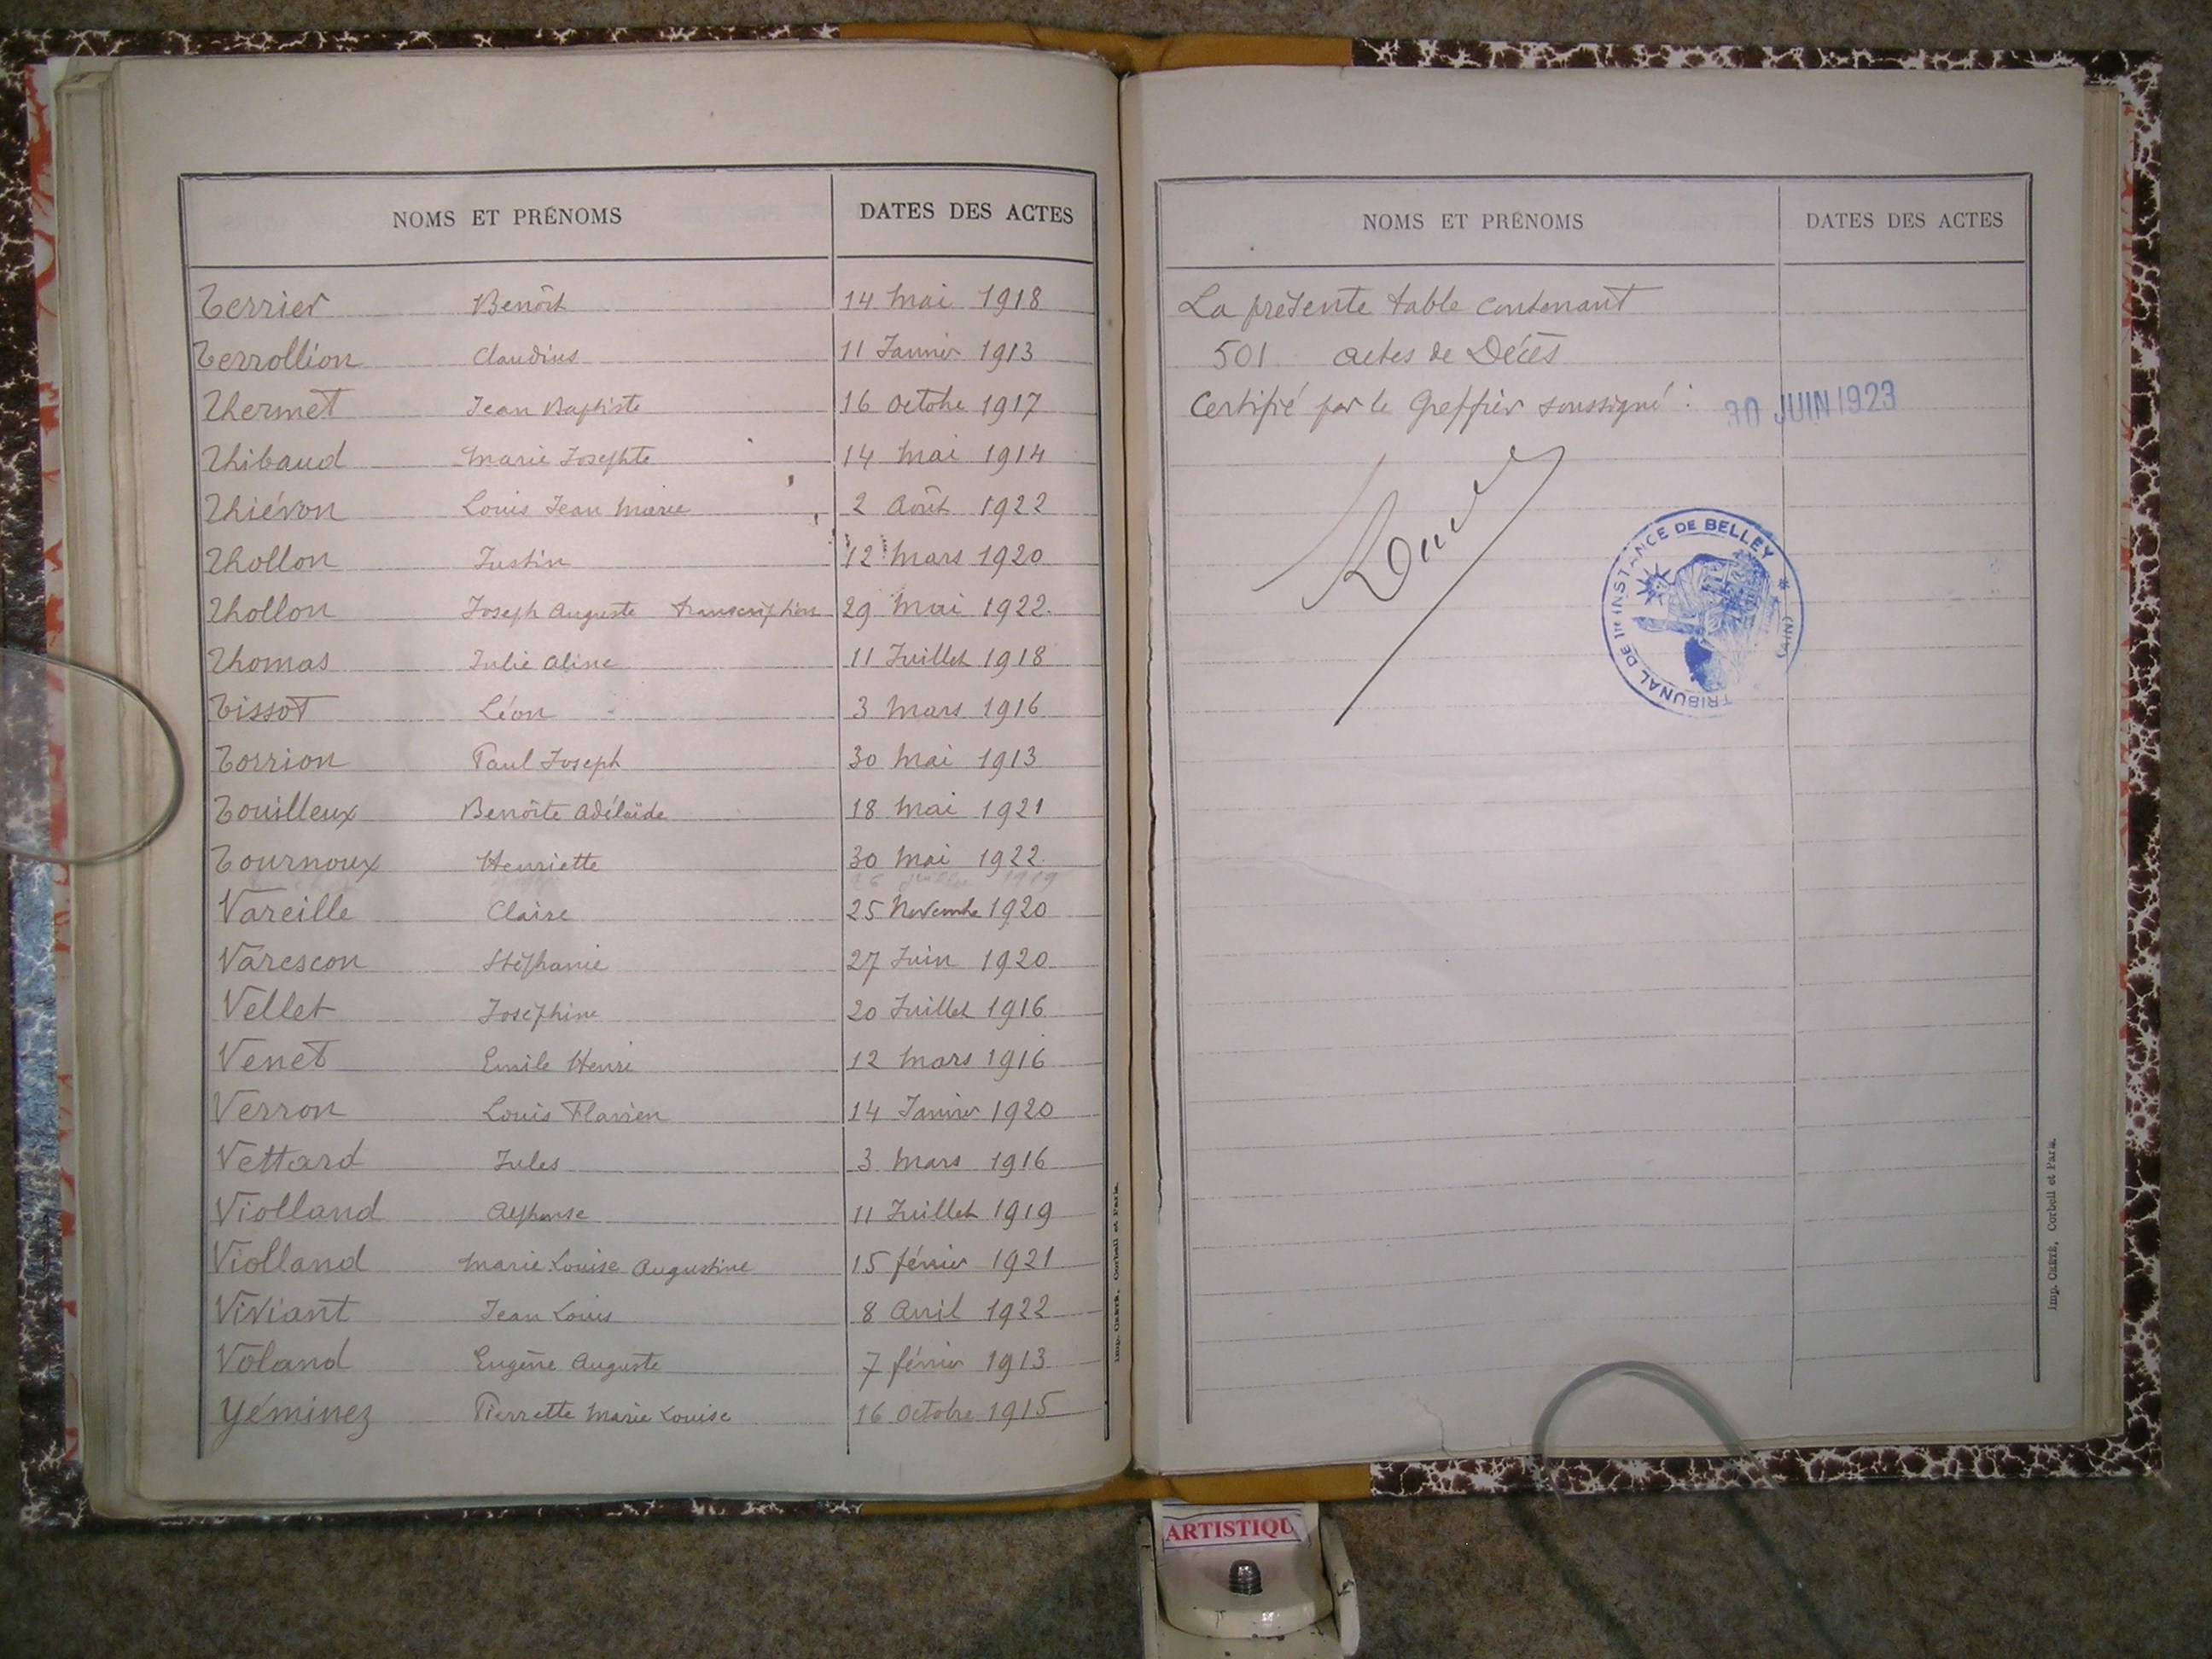 NOMS ET PRÉNOMS DATES DES ACTES
Terrier Benôit 14 Mai 1918
Terrollion Claudius 11 Janvier 1913
Thermet Jean Baptiste 16 Octobre 1917
Thibaud Marie Josephte 14 Mai 1914
Thiévon Louis Jean Marie 2 Août 1922
Thollon Justin 12 Mars 1920
Thollon Joseph Auguste transcription 29 Mai 1922
Thomas Julie Aline 11 Juillet 1918
Tissot Léon 3 Mars 1916
Torrion Paul Joseph 30 Mai 1913
Touilleux Benoîte Adélaïde 18 Mai 1921
Tournoux Henriette 30 Mai 1922
Vareille Claire 25 Novembre 1920
Varescon Stéphanie 27 Juin 1920
Vellet Joséphine 20 Juillet 1916
Venet Emile Henri 12 Mars 1916
Verron Louis Flavien 14 Janvier 1920
Vettard Jules 3 Mars 1916
Violland Alphonse 11 Juillet 1919
Violland Marie Louise Augustine 15 février 1921
Viviant Jean Louis 8 Avril 1922
Voland Eugène Auguste 7 février 1913
Yéminez Pierrette Marie Louise 16 Octobre 1915
Imp. CRÉTÉ, Corbeil et Paris.
NOMS ET PRÉNOMS DATES DES ACTES
La présente table contenant
501 actes de Décès
Certifié par le Greffier soussigné : 30 JUIN 1923
TRIBUNAL DE 1re INSTANCE DE BELLEY * (AIN)
Imp. CRÉTÉ, Corbeil et Paris.
ARTISTIQU